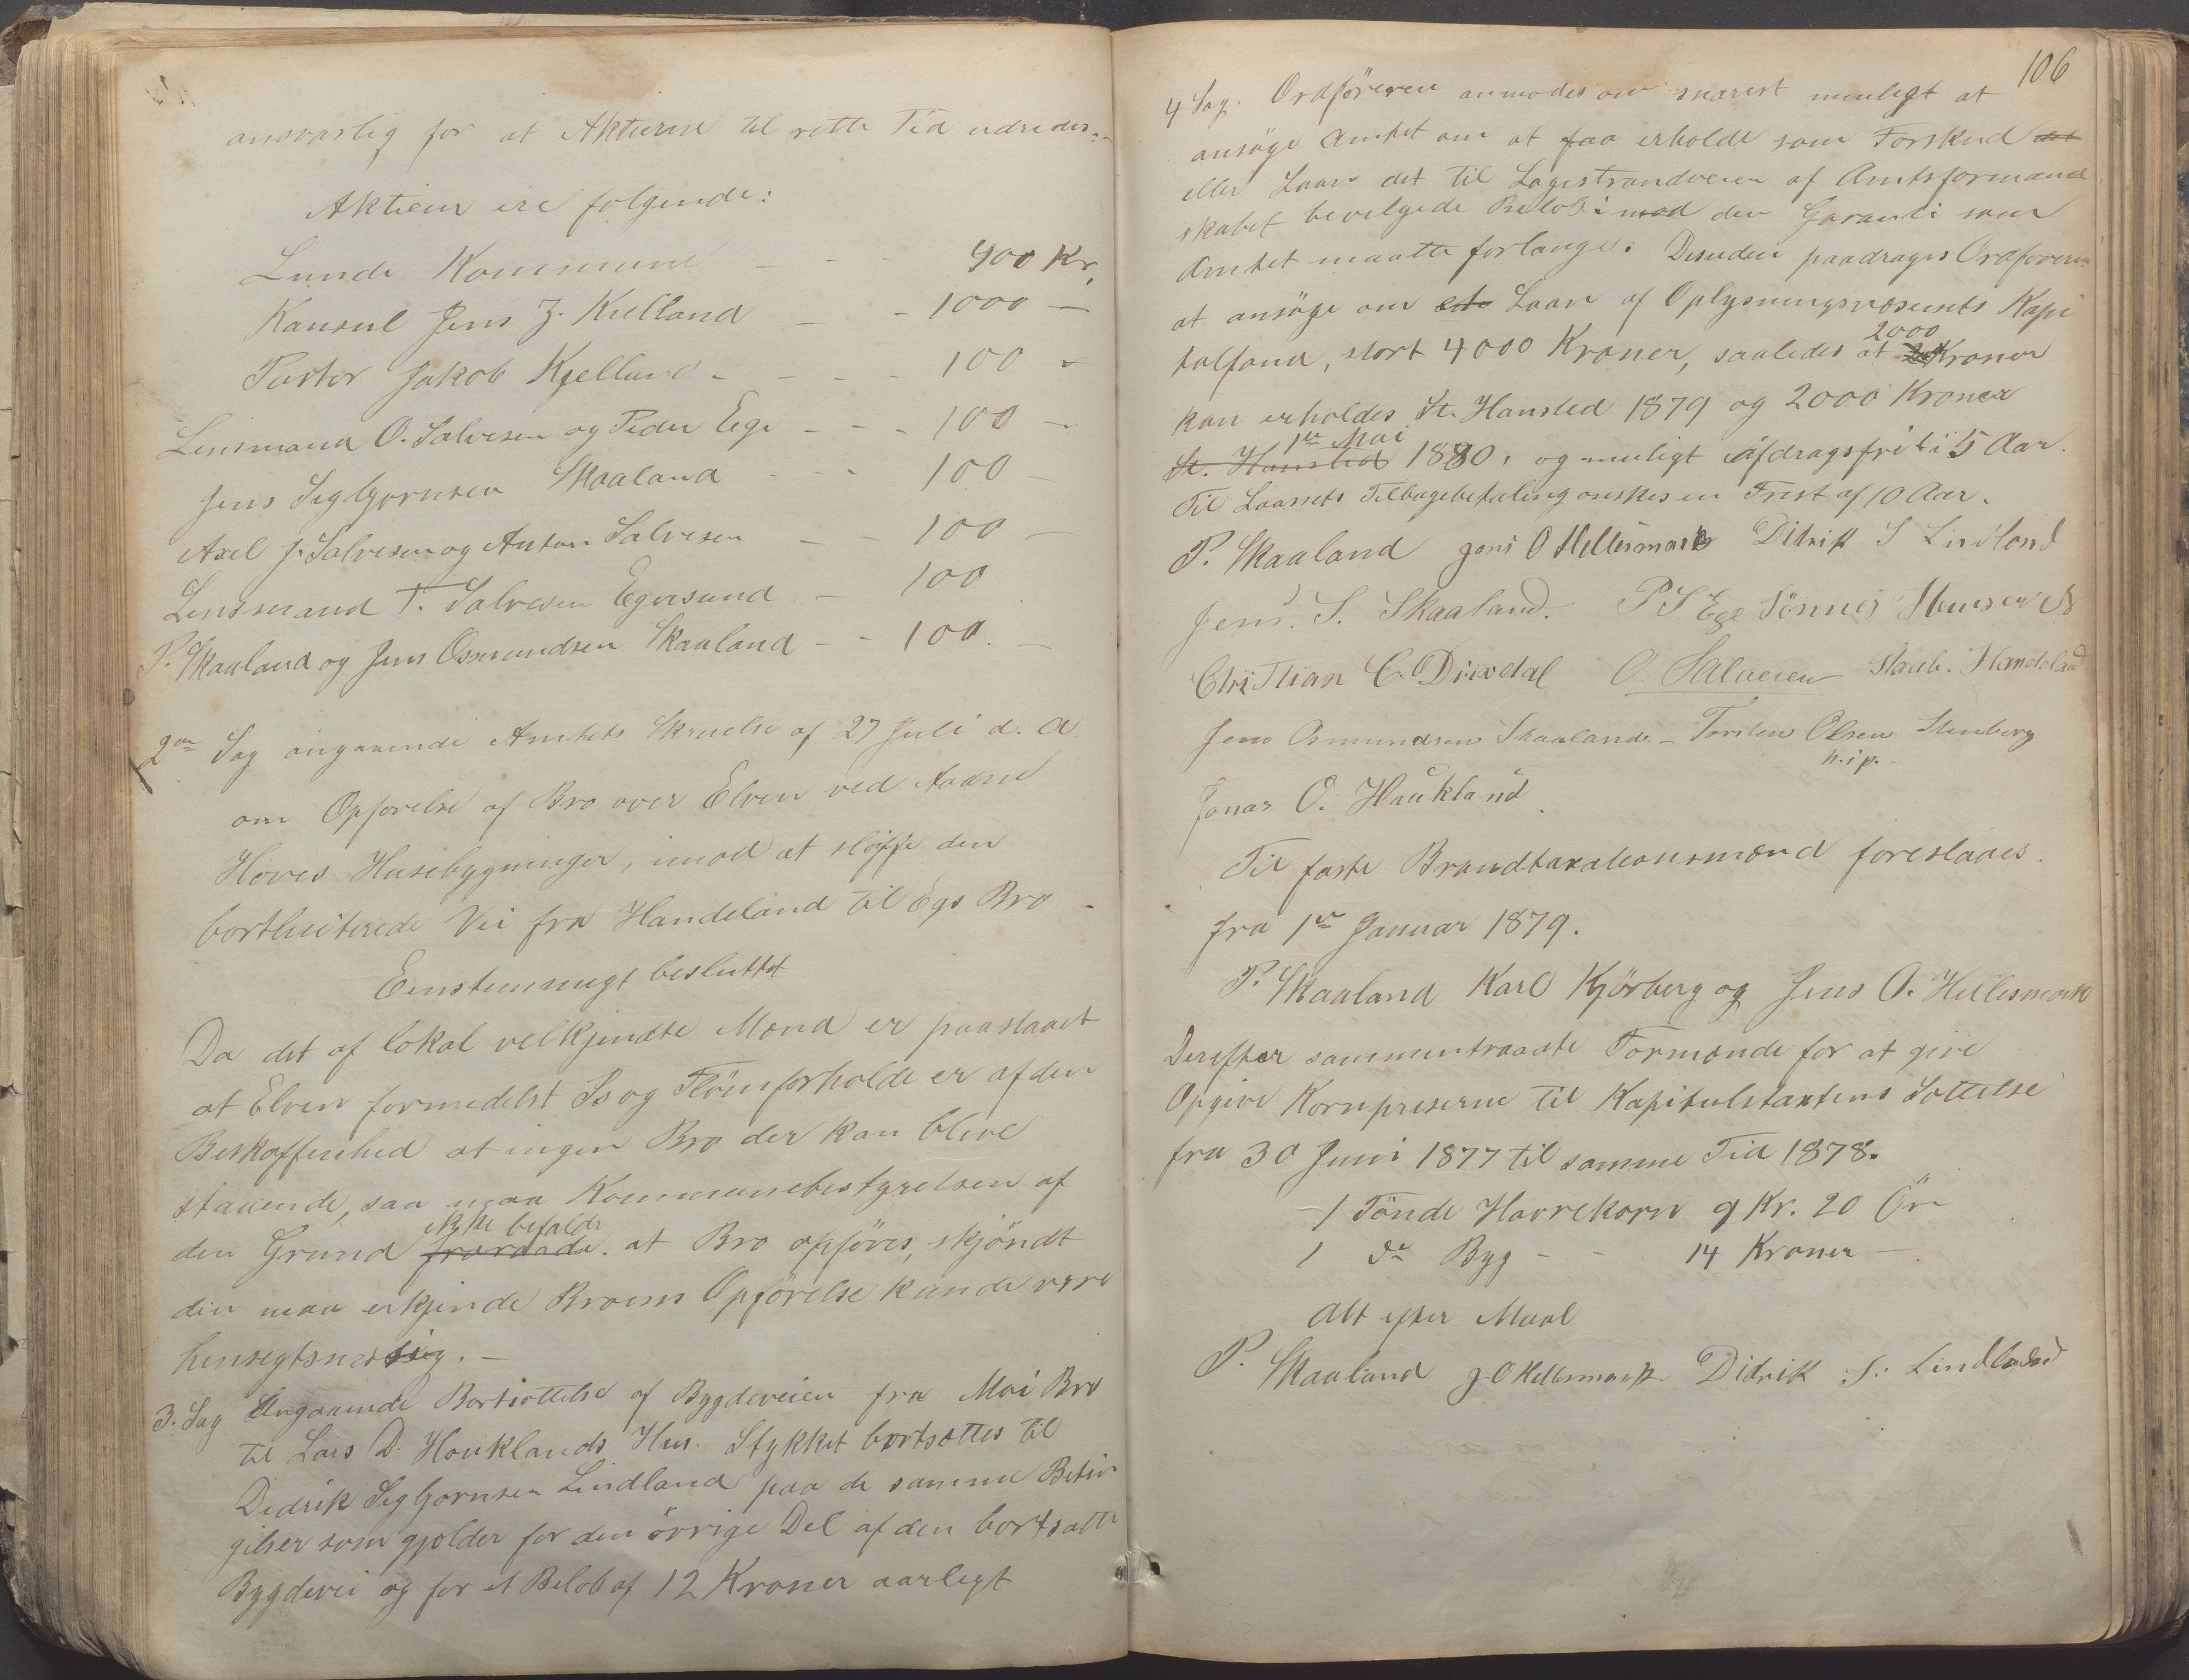 ansvarlig for at Aktierne til rette Tid udredes.-
Aktierne ere følgende:
Lunde Kommune - - - 400 Kr.
Konsul Jens Z. Kielland - - 1000 -
Pastor Jakob Kjelland - - - - 100 -
Lensmand O. Salvesen og Peder Ege - - - 100 -
Jens Sigbjørnsen Skaaland - - 100 -
Axel J. Salvesen og Anton Salvesen - - 100 -
Lensmand T. Salvesen Egersund - 100
P. Skaaland og Jens Osmundsen Skaaland - - 100. -
2en Sag angaaende Amtets Skrivelse af 27 Juli d. A.
om Opførelse af Bro over Elven ved Aarne
Hoves Husebygninger, imod at sløffe den
bortliciterede Vei fra Handeland til Egs Bro.
Eenstemmigt besluttet
Da det af lokal velkjendte Mænd er paastaaet
at Elven formedelst Is og Flömforholde er af den
Beskaffenhed at ingen Bro der kan blive
staaende, saa maa Kommunebestyrelsen af
ikke befale
den Grund fraraade. at Bro opföres, skjöndt
den maa erkjende Broens Opförelse kunde være
hensigtsmæssig. -
3. Sag Angaaende Bortsættelse af Bygdeveien fra Moi Bro
til Lars D. Houklands Hus. Stykket bortsættes til
Didrik Sigbjørnsen Lindland paa de samme Betin
gelser som gjælder for den övrige Del af den bortsatte
Bygdevei og for et Beløb af 12 Kroner aarligt
106
4 Sag. Ordföreren anmodes om snarest muligt at
ansöge Amtet om at faa erholde som Forskud det
eller Laan det til Lagestrandveien af Amtsformand
skabet bevilgede Beløb imod den Garanti som
Amtet maatte forlange. Desuden paadrages Ordføreren
at ansöge om et Laan af Oplysningsvæsenets Kapi
talfond, stort 4000 Kroner, saaledes at 2000 Kroner
kan erholdes St. Hansted 1879 og 2000 Kroner
1ste Mai
St. Hansted 1880. og muligt afdragsfrit i 5 Aar.
Til Laanets Tilbagebetaling ønskes en Frist af 10 Aar.
P. Skaaland Jens O Hellesmark Didrik S Lindland
Jens. S. Skaaland. P S Ege Tönnes Hansen
Christian C. Drivdal O. Salvesen Handeland
Jens Osmundsen Skaaland. - Torsten Olsen Stenberg
h. i p. -
Jonas O. Haukland.
Til faste Brandtaxationsmænd foreslaaes.
fra 1ste Januar 1879.
P. Skaaland Karl Kjörberg og Jens O. Hellesmark
Derefter sammentraadte Formænde for at give
Opgive Kornpriserne til Kapitulstaxtens Sættelse
fra 30 Juni 1877 til samme Tid 1878.
1 Tönde Havrekorn 9 Kr. 20 Öre
1 do Byg - - 14 Kroner -
Alt efter Maal
P. Skaaland J. O Hellesmark Didrik S. Lindland